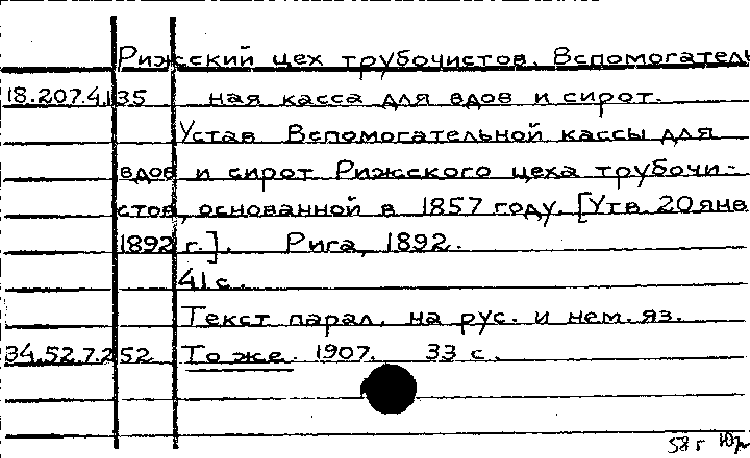 Рижский цех трубочистов. Вспомогатель
18.207.4.135 ная касса для вдов и сирот.
Устав Вспомогательной кассы для
вдов и сирот Рижского цеха трубочи-
стов, основанной в 1857 году. [Утв. 20 янв
1892 г.]. Рига, 1892.
41 с.
Текст парал. на рус. и нем. яз.
34.52.7.252 То же. 1907. 33 с.
58 г